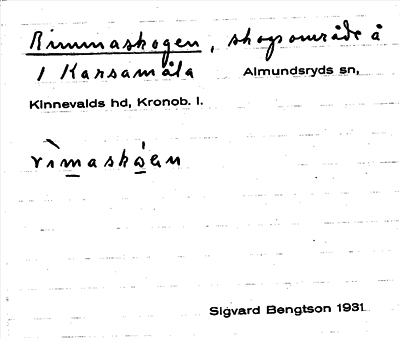 Rimmaskogen, skogsområde å
1 Karsamåla Almundsryds sn,
Kinnevalds hd, Kronob. l.
Sigvard Bengtson 1931